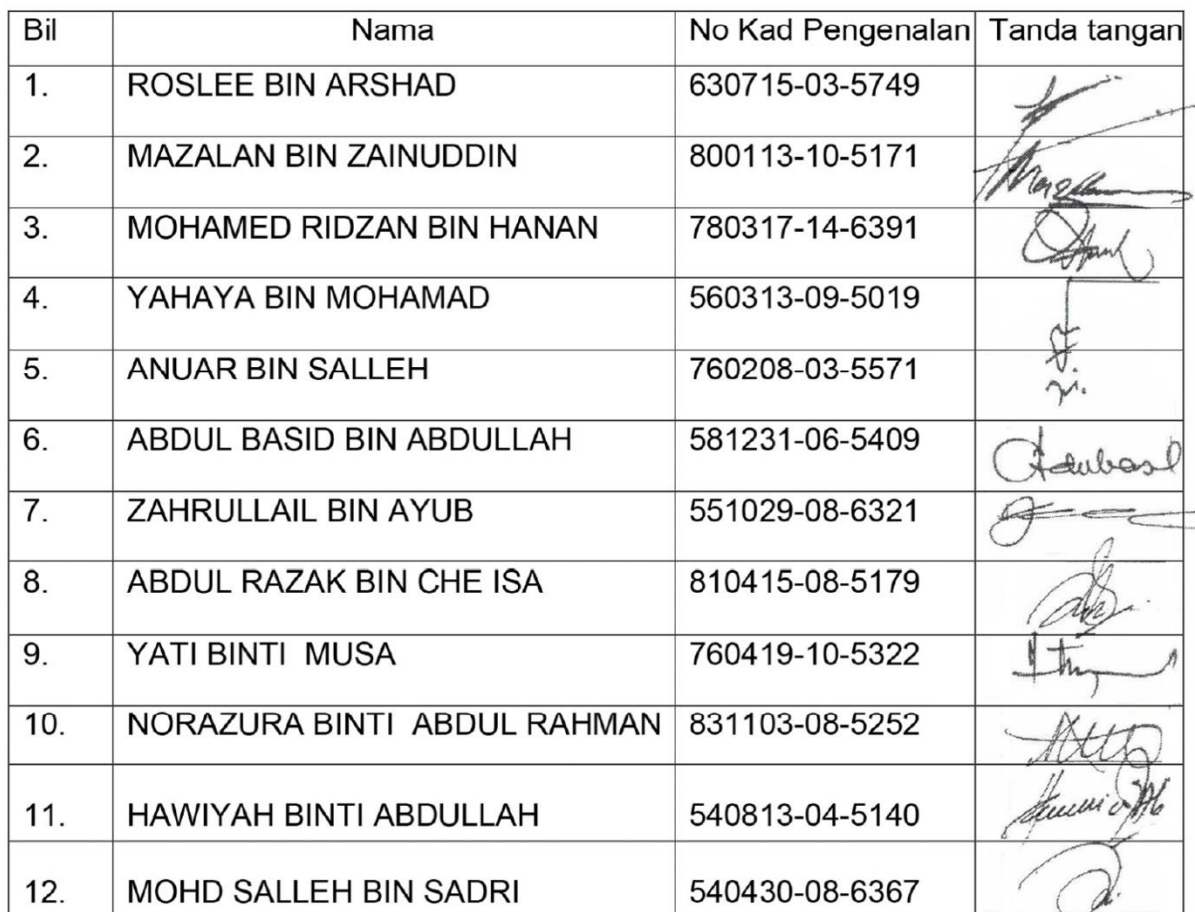 Bil Nama No Kad Pengenalan Tanda tangan
1. ROSLEE BIN ARSHAD 630715-03-5749
2. MAZALAN BIN ZAINUDDIN 800113-10-5171
3. MOHAMED RIDZAN BIN HANAN 780317-14-6391
4. YAHAYA BIN MOHAMAD 560313-09-5019
5. ANUAR BIN SALLEH 760208-03-5571
6. ABDUL BASID BIN ABDULLAH 581231-06-5409
7. ZAHRULLAIL BIN AYUB 551029-08-6321
8. ABDUL RAZAK BIN CHE ISA 810415-08-5179
9. YATI BINTI MUSA 760419-10-5322
10. NORAZURA BINTI ABDUL RAHMAN 831103-08-5252
11. HAWIYAH BINTI ABDULLAH 540813-04-5140
12. MOHD SALLEH BIN SADRI 540430-08-6367